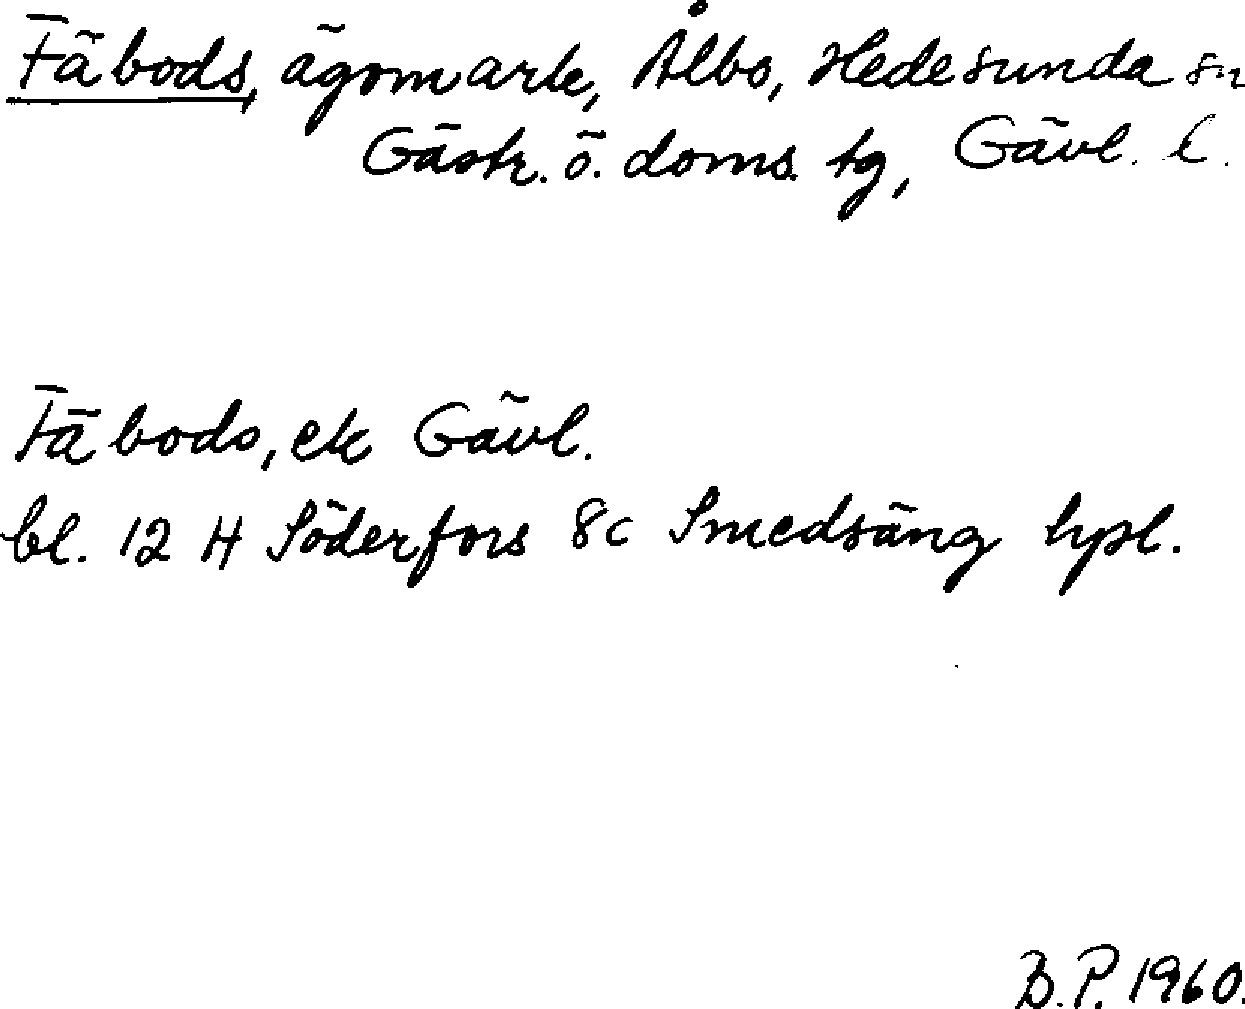 Fäbods, ägomark, Ålbo, Hedesunda sn
Gästr. ö. doms. tg, Gävl. l.
Fäbods, ek Gävl.
bl. 12 H Söderfors 8c Smedsäng hpl.
B.P. 1960.